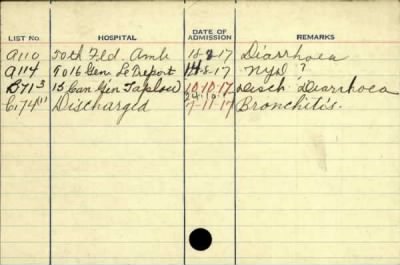 LIST NO. HOSPITAL DATE OF ADMISSION REMARKS
A110 50th Fld. Amb 18-8-17 Diarrhoea
A114 To 16 Gen. Le Treport 14-8-17 NYD ?
B71³ 15 Can Gen Taplow 10-10-17 Disch Diarrhoea
C174 Discharged 7-11-17 Bronchitis.